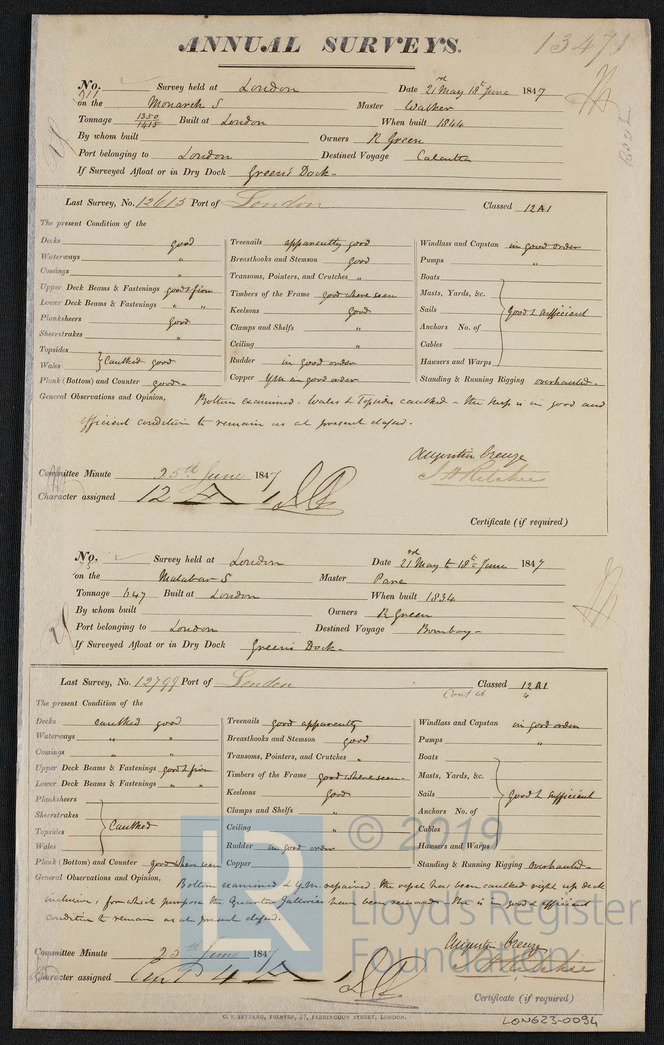 ANNUAL SURVEYS.
13471
No. Survey held at London Date 21rd May 18th June 1847
on the Monarch S Master Walker
Tonnage 1350/1415 Built at London When built 1844
By whom built Owners R Green
Port belonging to London Destined Voyage Calcutta
If Surveyed Afloat or in Dry Dock Green's Dock
Last Survey, No. 12615 Port of London Classed 12A1
The present Condition of the
Decks good
Waterways "
Comings "
Upper Deck Beams & Fastenings good & firm
Lower Deck Beams & Fastenings " "
Planksheers good
Sheerstrakes "
Topsides
Wales } Caulked good
Plank (Bottom) and Counter good
Treenails apparently good
Breasthooks and Stemson good
Transoms, Pointers, and Crutches "
Timbers of the Frame good where seen
Keelsons good
Clamps and Shelfs "
Ceiling "
Rudder in good order
Copper Ym in good order
Windlass and Capstan in good order
Pumps "
Boats
Masts, Yards, &c.
Sails } Good & sufficient
Anchors No. of
Cables
Hawsers and Warps
Standing & Running Rigging overhauled
General Observations and Opinion, Bottom examined - Wales & Topsides caulked - the ship is in good and
efficient condition to remain as at present classed.
Augustin Creuze
J H Ritchie
Committee Minute 25th June 1847
Character assigned 12 A 1
Certificate (if required)
No. Survey held at London Date 21rd May to 18th June 1847
on the Malabar S Master Pare
Tonnage 647 Built at London When built 1834
By whom built Owners R Green
Port belonging to London Destined Voyage Bombay
If Surveyed Afloat or in Dry Dock Green's Dock
Last Survey, No. 12799 Port of London Classed 12A1
Cont 46 4
The present Condition of the
Decks caulked good
Waterways " "
Comings " "
Upper Deck Beams & Fastenings good & firm
Lower Deck Beams & Fastenings " "
Planksheers
Sheerstrakes
Topsides } Caulked
Wales
Plank (Bottom) and Counter good where seen
Treenails good apparently
Breasthooks and Stemson good
Transoms, Pointers, and Crutches "
Timbers of the Frame good where seen
Keelsons good
Clamps and Shelfs "
Ceiling "
Rudder in good order
Copper
Windlass and Capstan in good order
Pumps "
Boats
Masts, Yards, &c.
Sails } Good & sufficient
Anchors No. of
Cables
Hawsers and Warps
Standing & Running Rigging overhauled
General Observations and Opinion, Bottom examined & Y.M. repaired the vessel has been caulked right up deck
inclusive, for which purpose the Quarter Galleries have been removed. She is in good & efficient
condition to remain as at present classed.
Augustin Creuze
J H Ritchie
Committee Minute 25th June 1847
Character assigned Cont 4 A 1
Certificate (if required)
C. F. SEYFANG, PRINTER, 57, FARRINGDON STREET, LONDON.
LON623-0094
LR © 2019
Lloyd's Register
Foundation